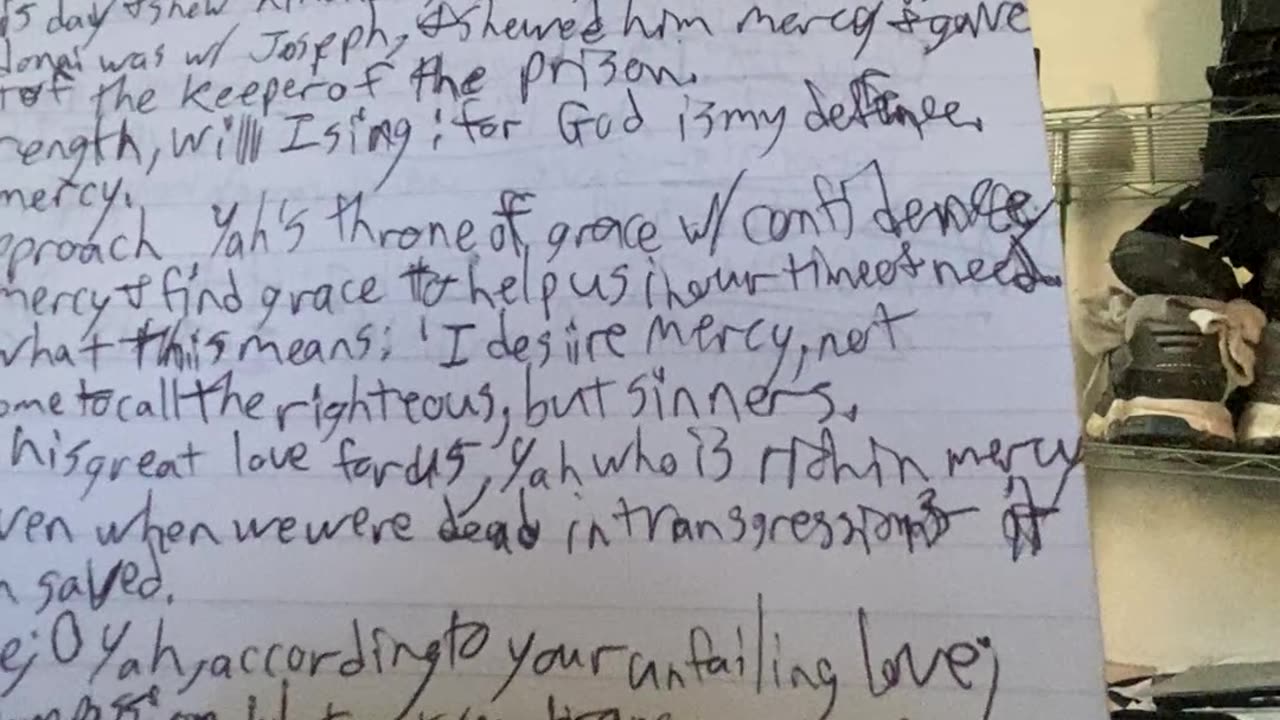 day & shew
was w/ Joseph, & shewed him mercy & gave
the keeper of the prison.
rength, will I sing : for God is my defence.
mercy.
proach Yah's throne of grace w/ confidence
mercy & find grace to help us in our time of need.
what this means: 'I desire mercy, not
ome to call the righteous, but sinners.
his great love for us, Yah who is rich in mercy
ven when we were dead in transgressions - it
saved.
e; O Yah, according to your unfailing love;